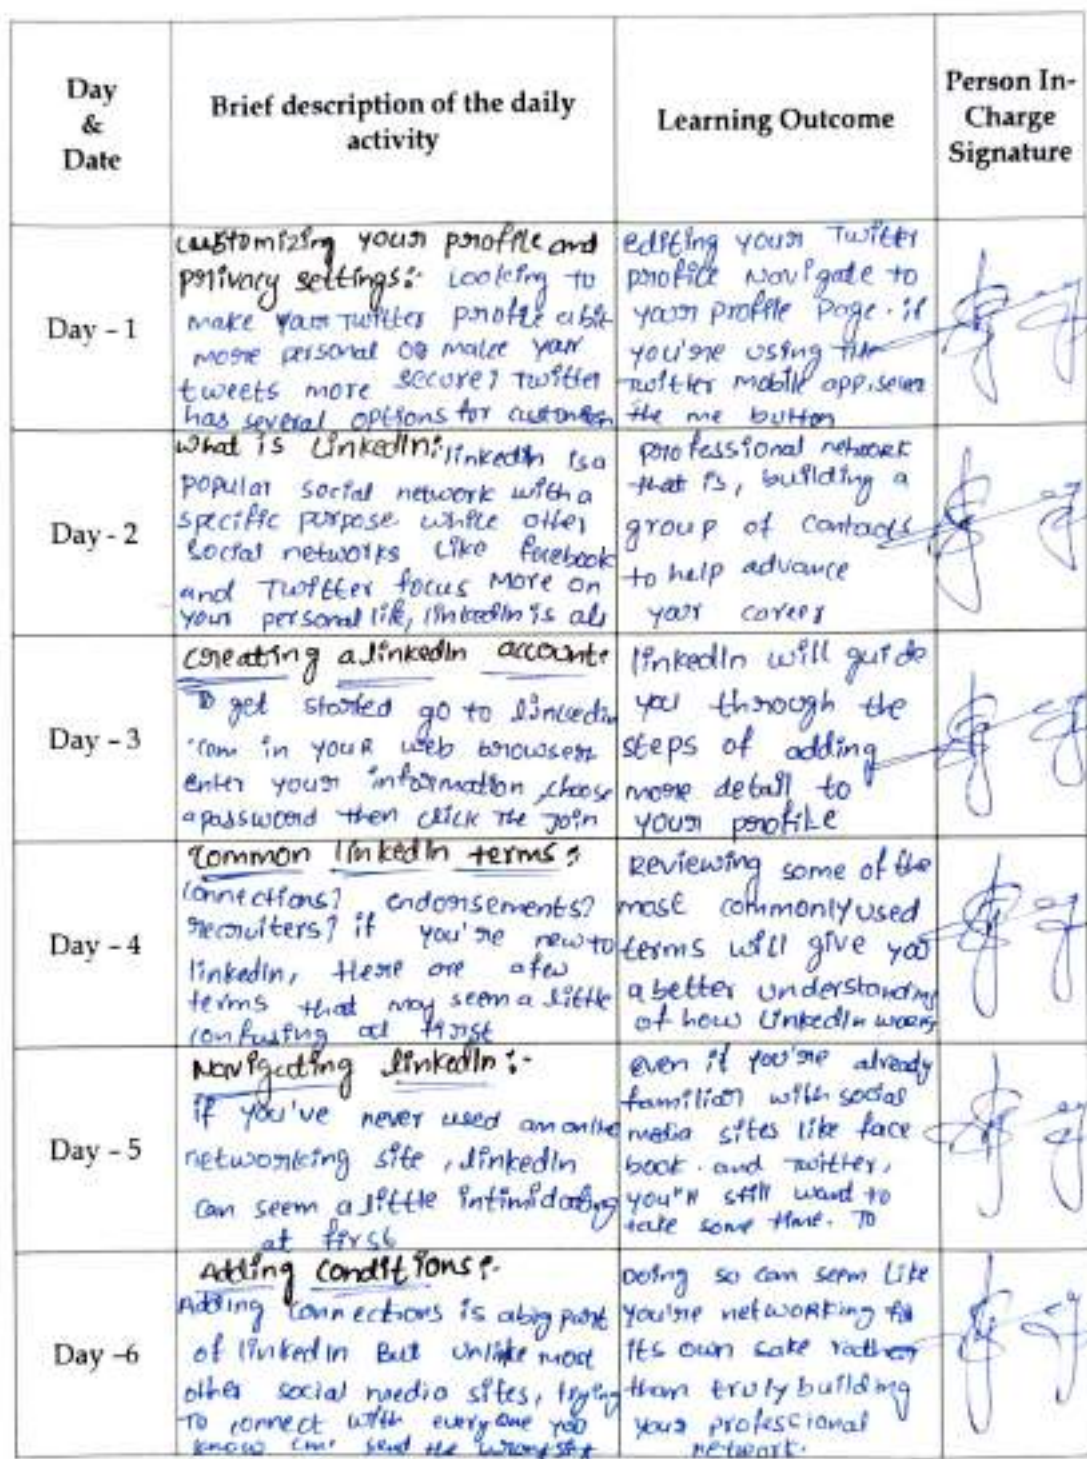 Day
&
Date
Brief description of the daily
activity
Learning Outcome
Person In-
Charge
Signature
Day - 1
customizing your profile and
privacy settings:- Looking to
make your Twitter profile a bit
more personal or make your
tweets more secure? Twitter
has several options for
editing your Twitter
profile Navigate to
your profile page. if
you're using the
Twitter mobile app,
the me button
Day - 2
What is LinkedIn:- linkedin is a
popular social network with a
specific purpose. while other
social networks like facebook
and Twitter focus more on
your personal life, linkedIn is
professional network
that is, building a
group of contacts
to help advance
your career
Day - 3
creating a linkedIn account:
To get started go to linkedin
.com in your web browser
enter your information, choose
a password then click the join
linkedIn will guide
you through the
steps of adding
more detail to
your profile
Day - 4
Common linkedIn terms:
Connections? endorsements?
recruiters? if you're new to
linkedIn, there are a few
terms that may seem a little
confusing at first
Reviewing some of the
most commonly used
terms will give you
a better understanding
of how LinkedIn works
Day - 5
Navigating linkedIn:-
if you've never used an online
networking site, linkedIn
can seem a little intimidating
at first
even if you're already
familiar with social
media sites like face
book. and Twitter,
you'll still want to
take some time. To
Day -6
Adding conditions:-
Adding Connections is a big part
of linkedIn But unlike most
other social media sites, trying
To connect with everyone you
know can send the wrong
Doing so can seem like
you're networking for
its own sake rather
than truly building
your professional
network.